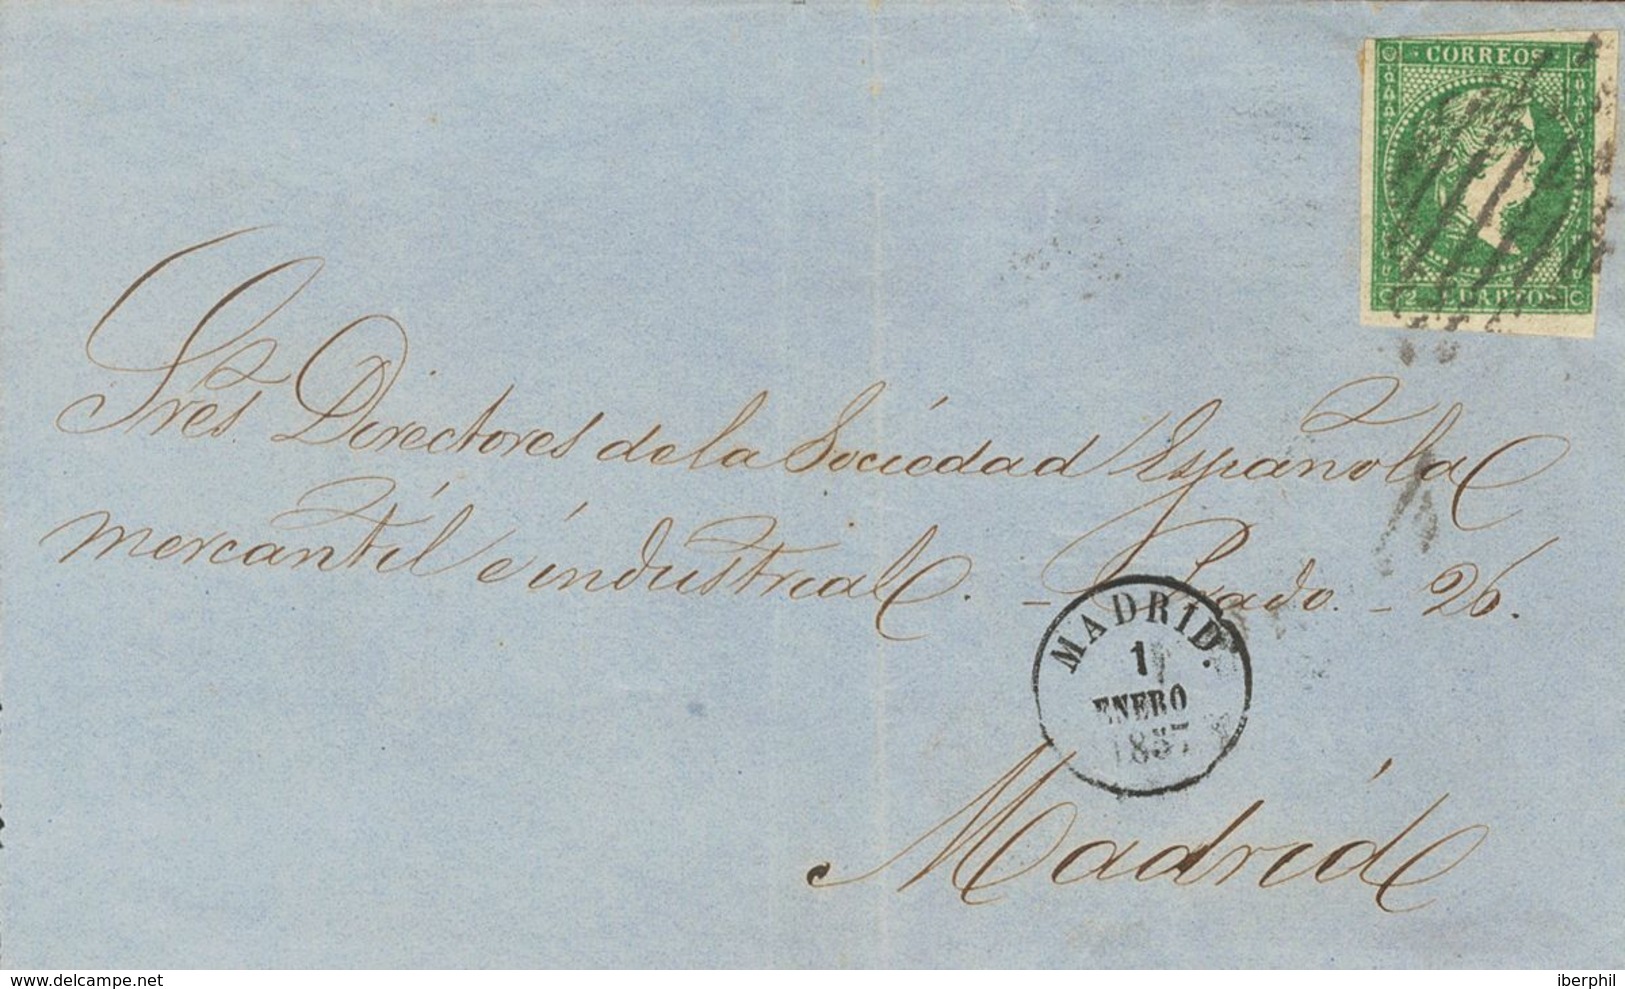 CORREOS
2 CUARTOS
Sres. Directores de la Sociedad Española
mercantil e industrial. - Prado. - 26.
MADRID.
1
ENERO
1857
Madrid
www.delcampe.net
iberphil